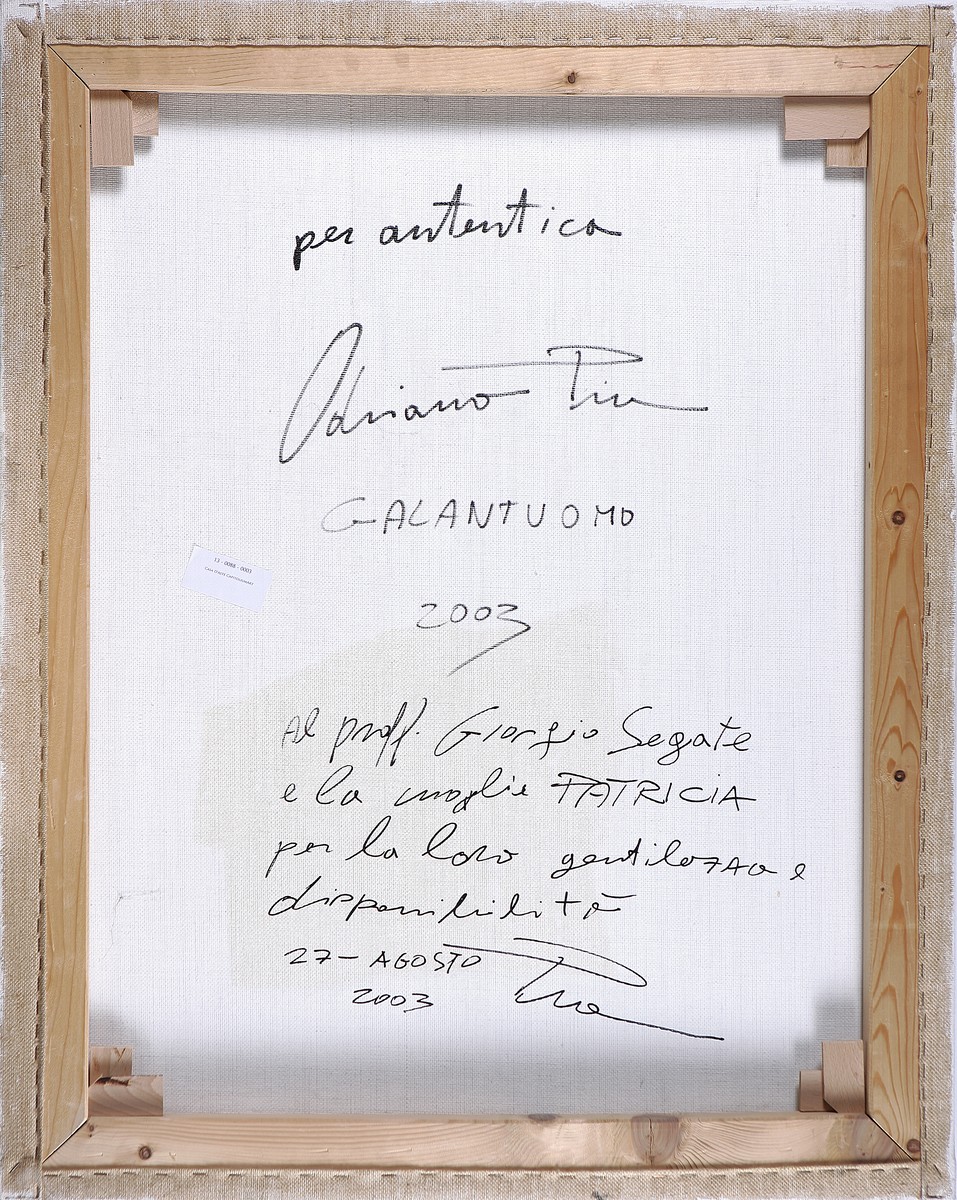 per autentica
Adriano
GALANTUOMO
13 - 0088 - 0003
2003
Al proff. Giorgio Segate
e la moglie PATRICIA
per la loro gentilezza e
disponibilità
27 - AGOSTO
2003